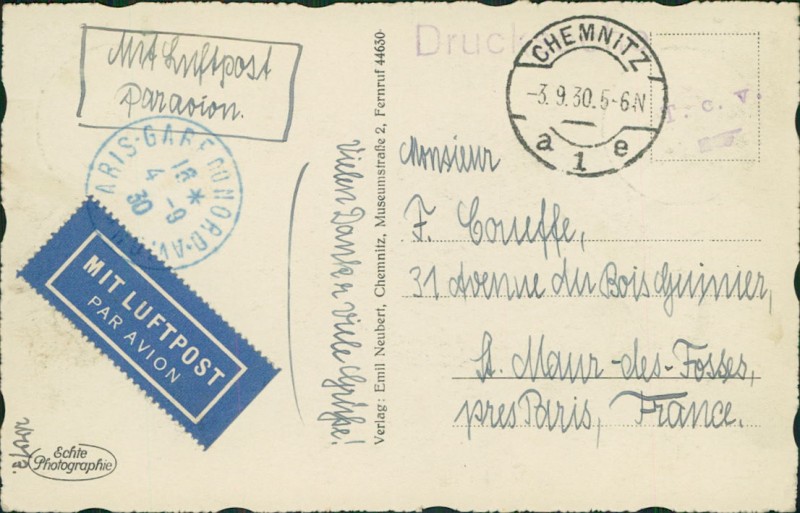 Mit Luftpost
Par avion.
Druck
CHEMNITZ
-3.9.30.5-6N
a 1 e
T. c. v.
PARIS·GARE DU NORD·AV
16 *
4 -9
30
MIT LUFTPOST
PAR AVION
Vielen Dank u. viele Grüße!
Verlag: Emil Neubert, Chemnitz, Museumstraße 2, Fernruf 44630
Monsieur
F. Coueffe,
31 Avenue du Bois Guimier,
St. Maur-des-Fosses,
pres Paris, France.
Echte
Photographie